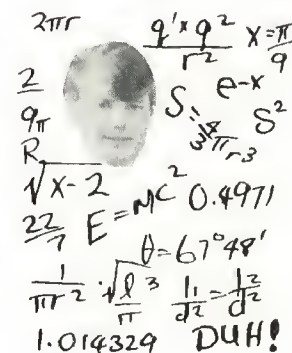 2πr
q'×q² / r²
x=π/9
2/9π
e-x
S=4/3πr3
S²
R
√x-2
22/7
E=MC²
0.4971
θ=67°48'
1/πr² · √l³/π
I1/d² = I2/d²
1.014329
DUH!